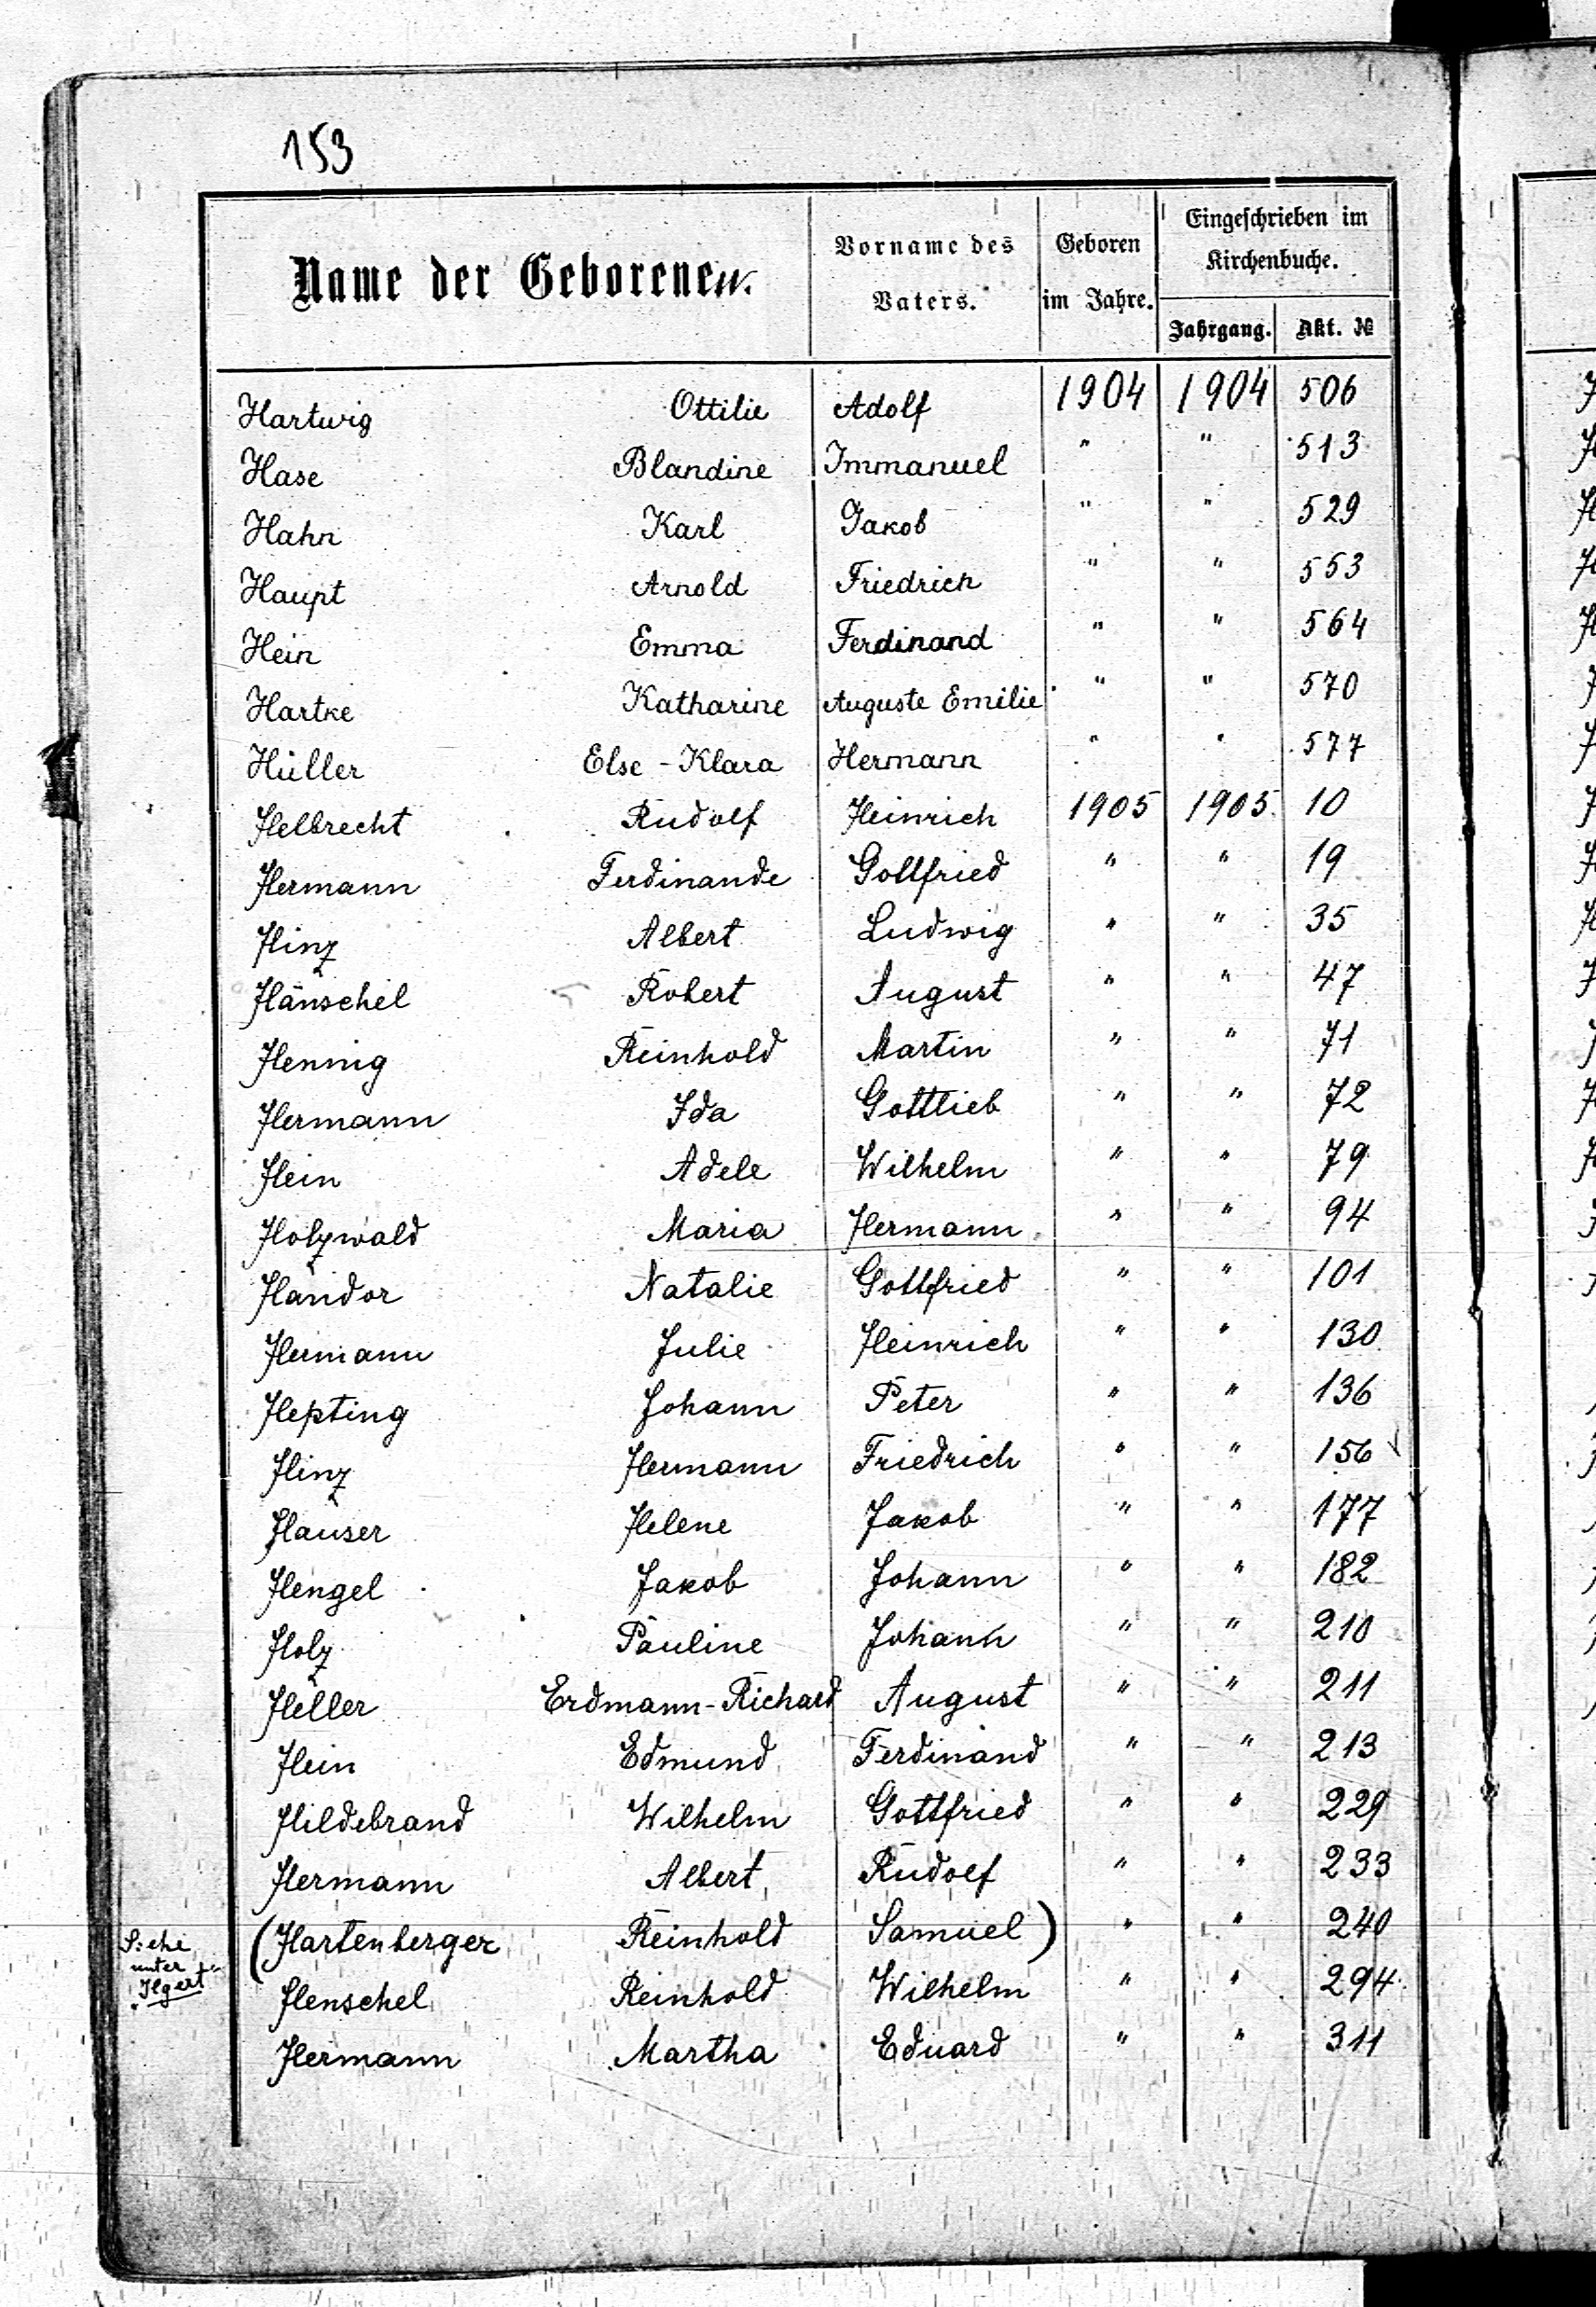 153
Name der Geborenen. Vorname des Vaters. Geboren im Jahre. Eingeschrieben im Kirchenbuche. Jahrgang. Akt. №
Hartwig Ottilie Adolf 1904 1904 506
Hase Blandine Immanuel " " 513
Hahn Karl Jakob " " 529
Haupt Arnold Friedrich " " 553
Hein Emma Ferdinand " " 564
Hartke Katharine Auguste Emilie " " 570
Hüller Else-Klara Hermann " " 577
Helbrecht Rudolf Heinrich 1905 1905 10
Hermann Ferdinande Gottfried " " 19
Hinz Albert Ludwig " " 35
Hänschel Robert August " " 47
Hennig Reinhold Martin " " 71
Hermann Ida Gottlieb " " 72
Hein Adele Wilhelm " " 79
Holzwald Maria Hermann " " 94
Handor Natalie Gottfried " " 101
Hermann Julie Heinrich " " 130
Hepting Johann Peter " " 136
Hinz Hermann Friedrich " " 156
Hauser Helene Jakob " " 177
Hengel Jakob Johann " " 182
Holz Pauline Johann " " 210
Heller Erdmann-Richard August " " 211
Hein Edmund Ferdinand " " 213
Hildebrand Wilhelm Gottfried " " 229
Hermann Albert Rudolf " " 233
(Hartenberger Reinhold Samuel) " " 240
Siehe
unter
Ilgert
Henschel Reinhold Wilhelm " " 294
Hermann Martha Eduard " " 311